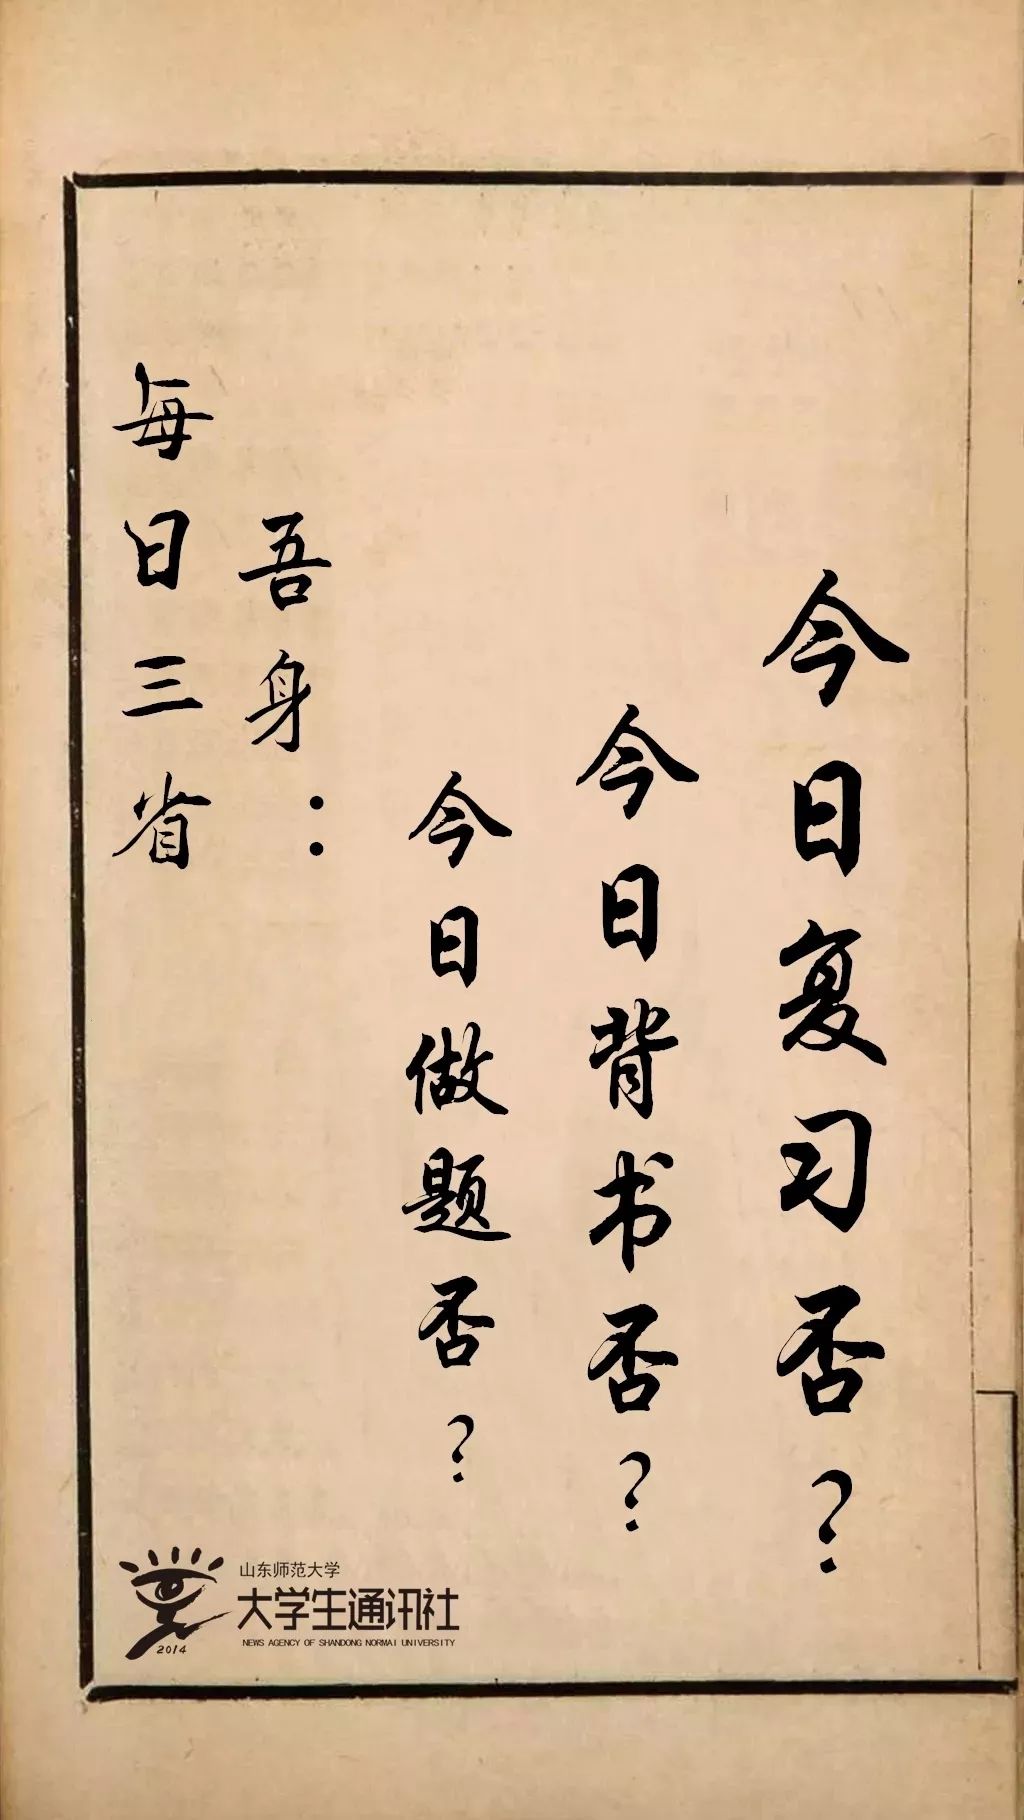 每日三省
吾身：
今日做题否？
今日背书否？
今日复习否？
山东师范大学
大学生通讯社
NEWS AGENCY OF SHANDONG NORMAI UNIVERSITY
2014